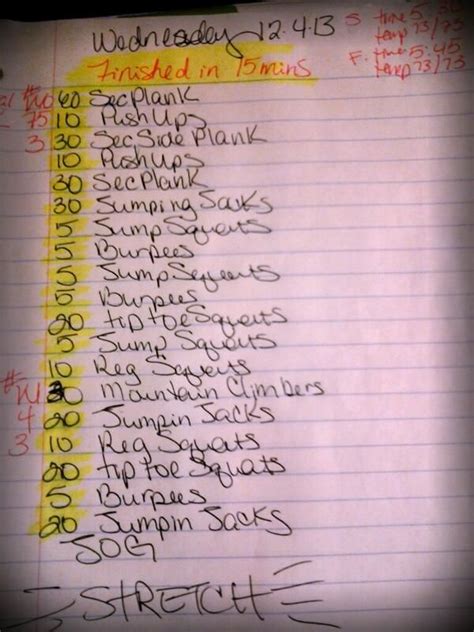 Wednesday 12.4.13
Finished in 15 mins
S time 5:30
temp 73/75
F: time 5:45
temp 73/73
60 Sec Plank
75 10 Push Ups
3 30 Sec Side Plank
10 Push Ups
30 Sec Plank
30 Jumping Jacks
5 Jump Squats
5 Burpees
5 Jump Squats
5 Burpees
20 tip toe Squats
5 Jump Squats
10 Reg Squats
# 30 Mountain Climbers
4 20 Jumpin Jacks
3 10 Reg Squats
20 tip toe Squats
5 Burpees
20 Jumpin Jacks
JOG
STRETCH